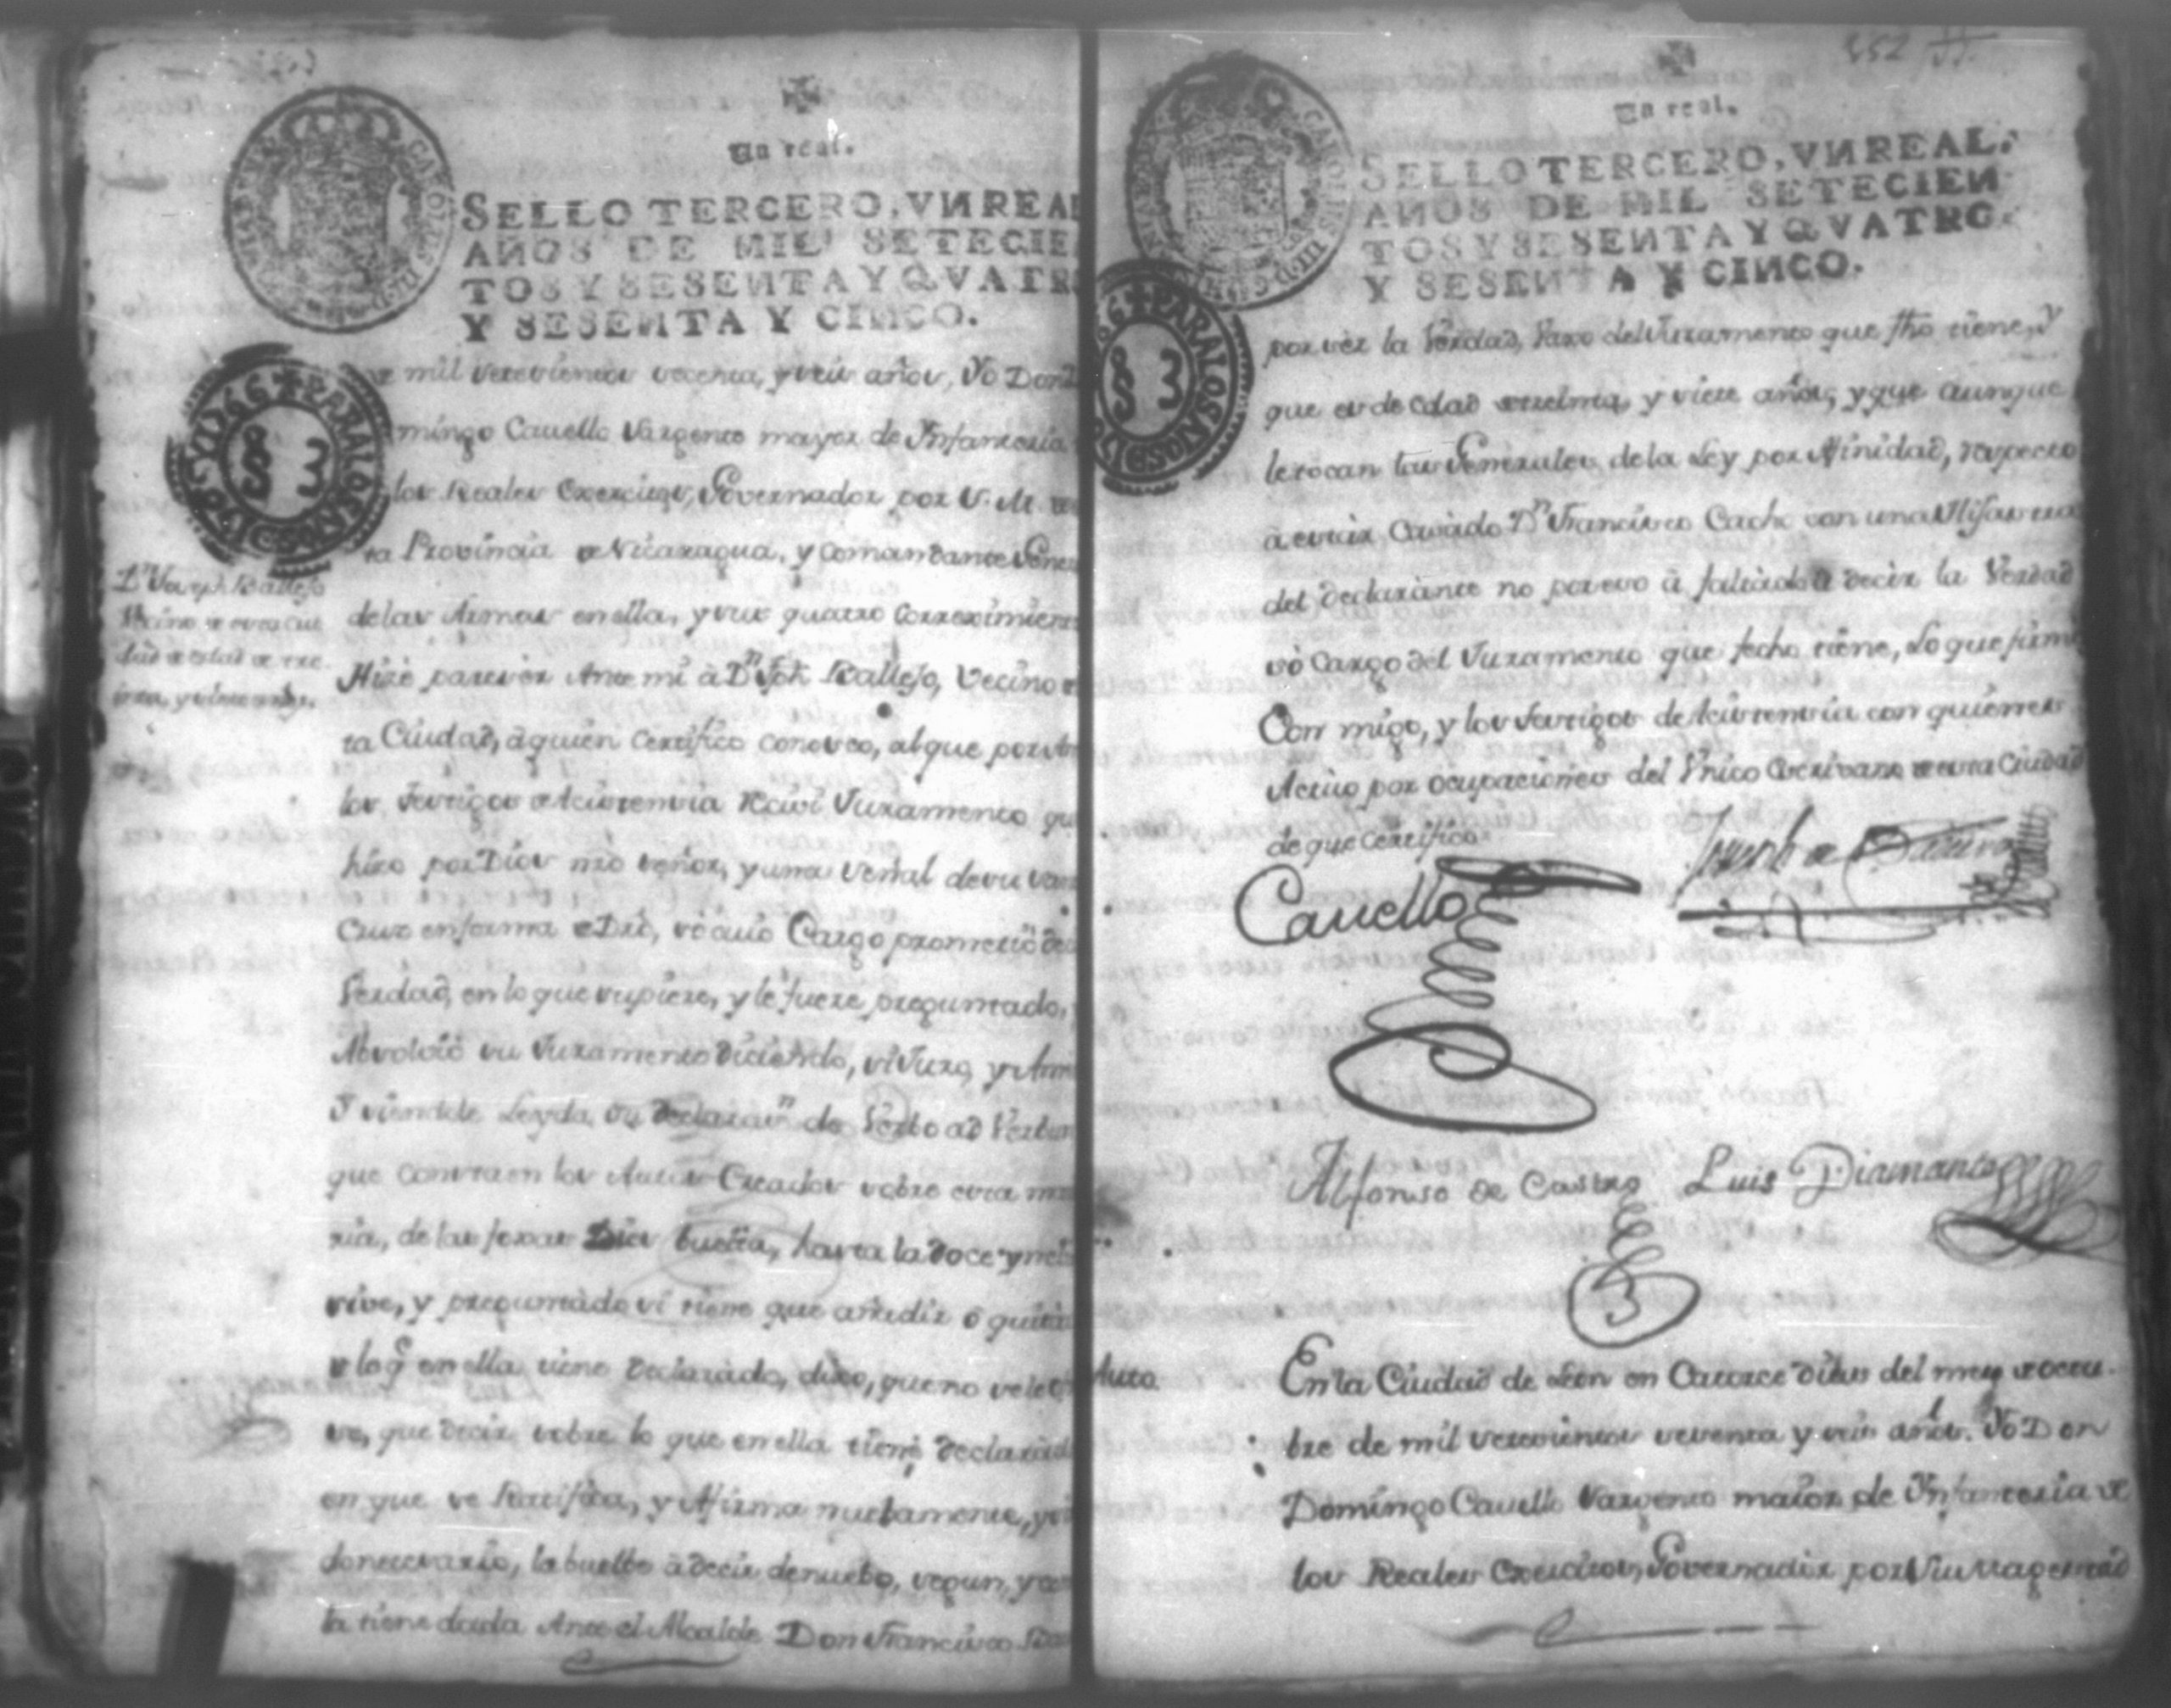 Un real.
SELLO TERCERO, VN REAL
AÑOS DE MIL SETECIE
TOS Y SESENTA Y QVATR
Y SESENTA Y CINCO.
mil setesientos secenta, y seis años, Yo Don
mingo Cauello Sargento mayor de Ynfanteria
los Reales Exercitos, Governador por S. M.
ta Provincia de Nicaragua, y comandante Gene
de las Armas en ella, y sus quatro Correximient
Hize pareser Ante mi à Dn. Jph. Vallejo, Vecino
ta Ciudad, à quien Certifico conosco, al que por
los Testigos de Asistensia Resivi Juramento qu
hizo por Dios nro señor, y una señal de su san
Cruz en forma de Dro, so cuio Cargo prometiò de
Verdad, en lo que supiere, y le fuere preguntado,
Absolbiò su Juramento diciendo, si Juro, y Am
Y siendole Leyda su declarasn. de Verbo ad Verbun
que consta en los Autos Creados sobre esta ma
ria, de las foxas Dies buelta, hasta la doce y
sive, y preguntado si tiene que añadir ò quitar
de lo q̃ en ella tiene Declarado, dixo, que no
que decir sobre lo que en ella tiene declarado
en que se Ratifica, y Afirma nuebamente, y
do necesario, la buelbe à decir de nuebo, segun, y
la tiene dada Ante el Alcalde Don Fransisco
Dn. Joseph Vallejo
Vecino de esta Ciu
dad de edad de
y siete años.
1766 ✠ PARA LOS AÑOS
§ 3
852
Un real.
SELLO TERCERO, VN REAL.
AÑOS DE MIL SETECIEN
TOS Y SESENTA Y QVATRO.
Y SESENTA Y CINCO.
1766 ✠ PARA LOS AÑOS
§ 3
por ser la Verdad, vaxo del Juramento que fho tiene, y
que es de edad de treinta, y siete años, y que aunque
le tocan las Generales de la Ley por Afinidad, respecto
à estar Casado Dn. Fransisco Cacho con una Hija
del declarante no por eso à faltado à decir la Verdad
so Cargo del Juramento que fecho tiene, Lo que firmò
Con migo, y los Testigos de Asistensia con quienes
Actuo por ocupaciones del Vnico Escrivano de esta Ciudad
de que Certifico.
Cauello
Joseph
Alfonso de Castro Luis Diamante
Auto.
En la Ciudad de Leon en Catorce dias del mes de octu-
bre de mil setesientos sesenta y seis años. Yo Don
Domingo Cauello Sargento maior de Ynfanteria de
los Reales Exercitos, Governador por Su Magestad